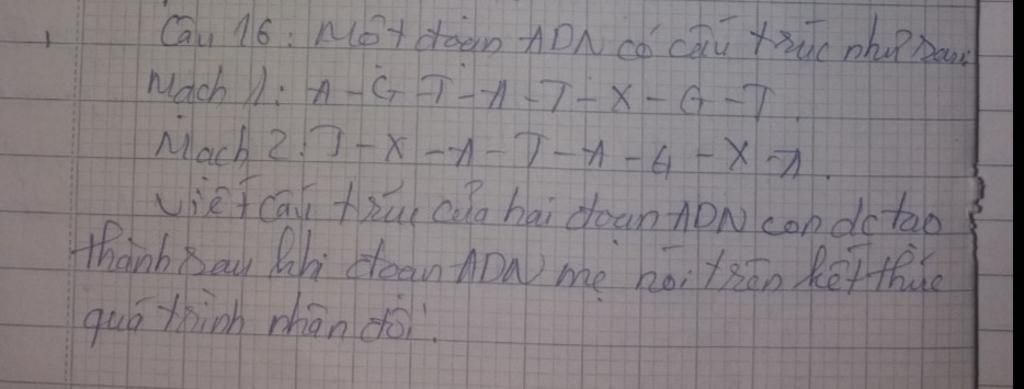 Câu 16: Một đoạn ADN có cấu trúc như sau:
Mạch 1: A - G - T - A - T - X - G - T
Mạch 2: T - X - A - T - A - G - X - A.
Viết cấu trúc của hai đoạn ADN con đc tạo
thành sau khi đoạn ADN mẹ nói trên kết thúc
quá trình nhân đôi.